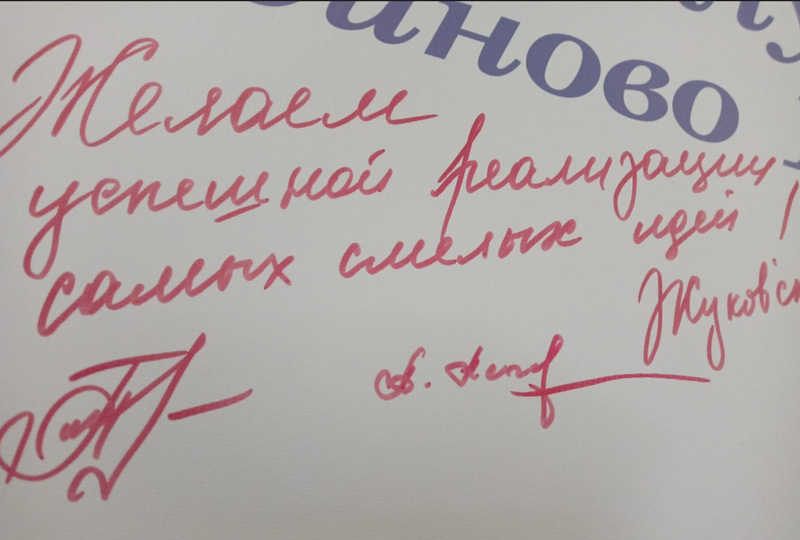 аново
Желаем
успешной реализации
самых смелых идей!